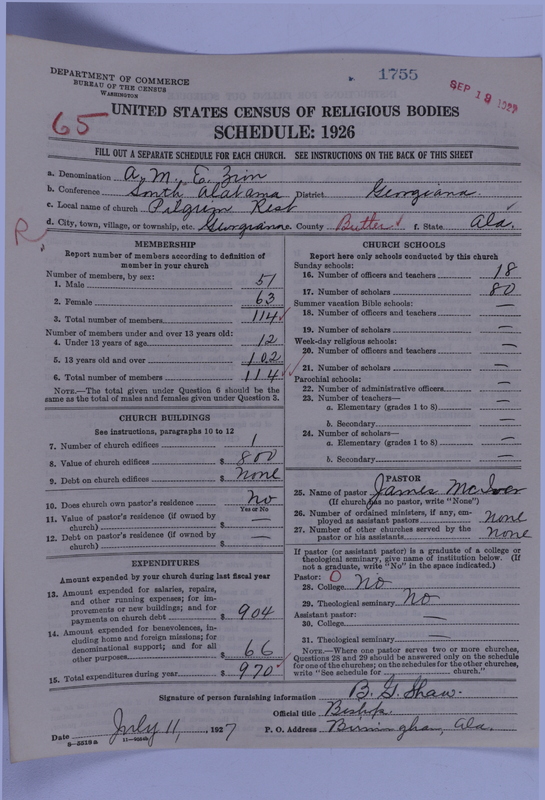 1755
SEP 19 1927
DEPARTMENT OF COMMERCE
BUREAU OF THE CENSUS
WASHINGTON
65
UNITED STATES CENSUS OF RELIGIOUS BODIES
SCHEDULE: 1926
FILL OUT A SEPARATE SCHEDULE FOR EACH CHURCH. SEE INSTRUCTIONS ON THE BACK OF THIS SHEET
a. Denomination A. M. E. Zion
b. Conference South Alabama District Georgiana.
c. Local name of church Pilgrim Rest
d. City, town, village, or township, etc. Georgiana. County Butler f. State Ala.
R
MEMBERSHIP
Report number of members according to definition of
member in your church
Number of members, by sex:
1. Male 51
2. Female 63
3. Total number of members 114
Number of members under and over 13 years old:
4. Under 13 years of age 12
5. 13 years old and over 102
6. Total number of members 114
NOTE.—The total given under Question 6 should be the
same as the total of males and females given under Question 3.
CHURCH BUILDINGS
See instructions, paragraphs 10 to 12
7. Number of church edifices 1
8. Value of church edifices $ 800
9. Debt on church edifices $ None
10. Does church own pastor's residence No
Yes or No
11. Value of pastor's residence (if owned by
church) $ —
12. Debt on pastor's residence (if owned by
church) $ —
EXPENDITURES
Amount expended by your church during last fiscal year
13. Amount expended for salaries, repairs,
and other running expenses; for im-
provements or new buildings; and for
payments on church debt $ 904
14. Amount expended for benevolences, in-
cluding home and foreign missions; for
denominational support; and for all
other purposes $ 66
15. Total expenditures during year $ 970
CHURCH SCHOOLS
Report here only schools conducted by this church
Sunday schools:
16. Number of officers and teachers 18
17. Number of scholars 80
Summer vacation Bible schools:
18. Number of officers and teachers —
19. Number of scholars —
Week-day religious schools:
20. Number of officers and teachers —
21. Number of scholars —
Parochial schools:
22. Number of administrative officers —
23. Number of teachers—
a. Elementary (grades 1 to 8) —
b. Secondary —
24. Number of scholars—
a. Elementary (grades 1 to 8) —
b. Secondary —
PASTOR
25. Name of pastor James McIver
(If church has no pastor, write "None")
26. Number of ordained ministers, if any, em-
ployed as assistant pastors None
27. Number of other churches served by the
pastor or his assistants None
If pastor (or assistant pastor) is a graduate of a college or
theological seminary, give name of institution below. (If
not a graduate, write "No" in the space indicated.)
Pastor: O
28. College No
29. Theological seminary No
Assistant pastor:
30. College —
31. Theological seminary —
NOTE.—Where one pastor serves two or more churches,
Questions 28 and 29 should be answered only on the schedule
for one of the churches; on the schedules for the other churches,
write "See schedule for church."
Signature of person furnishing information B. G. Shaw.
Official title Bishop
Date July 11, 1927 P. O. Address Birmingham, Ala.
8-3318a